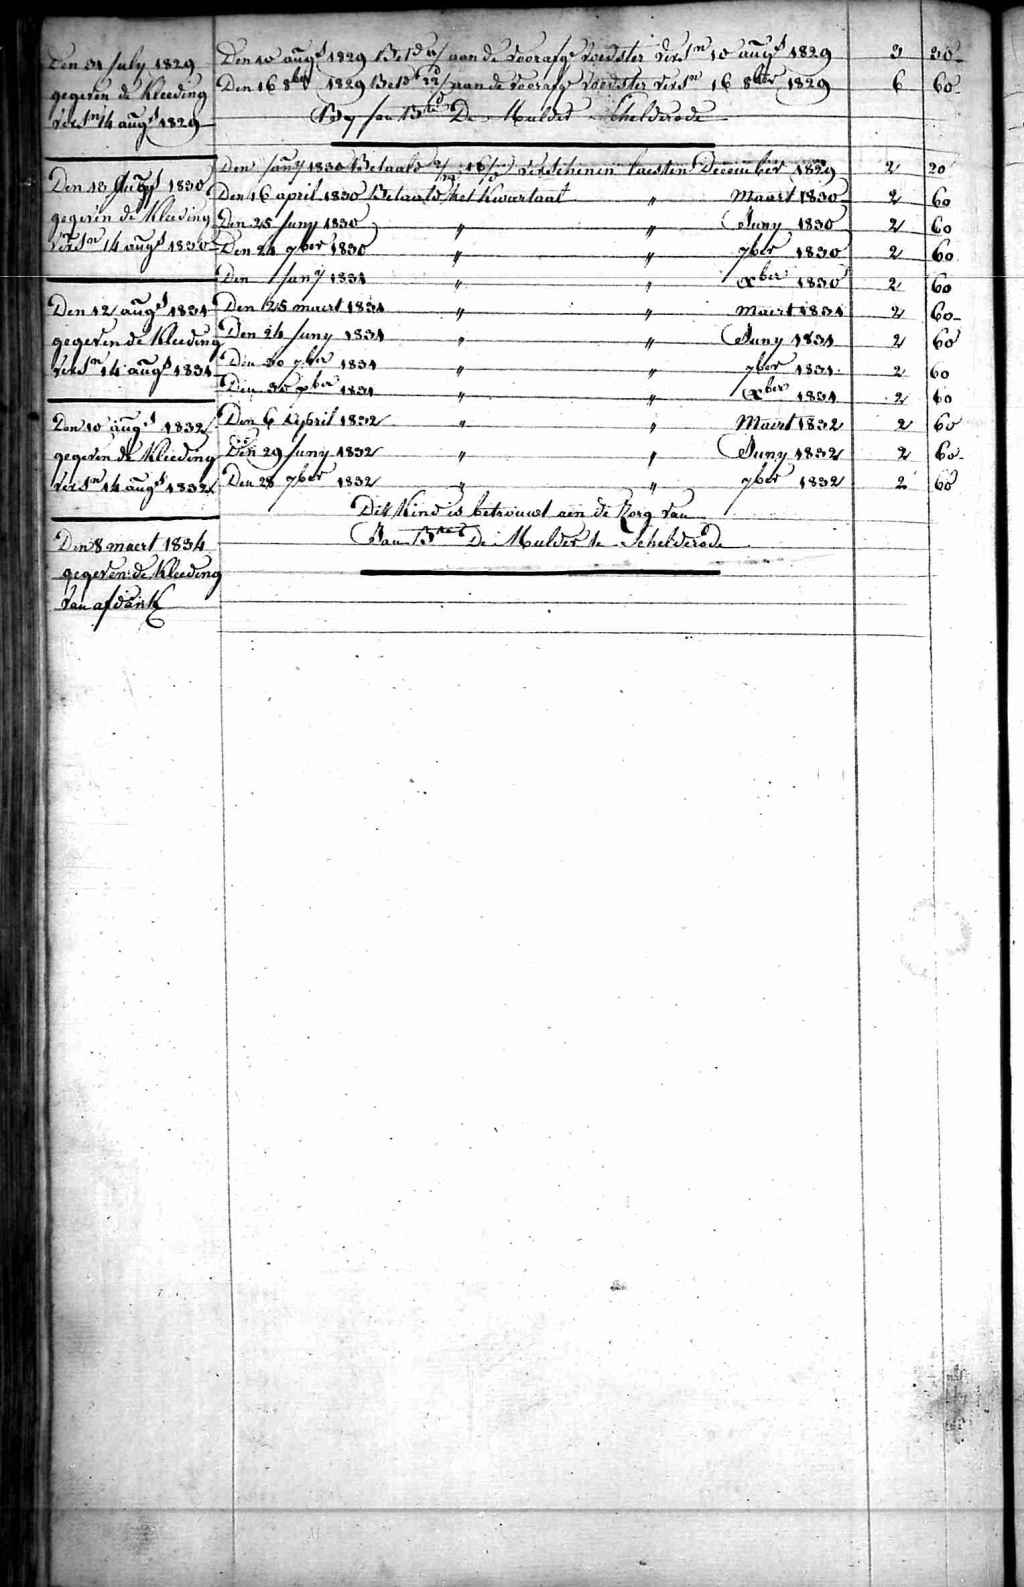 Den 31 July 1829
gegeven de Kleeding
versn 14 augt 1829
Den 10 augt 1829 aan de voorafge voedster versn 10 augt 1829 3 30
Den 16 8ber 1829 aan de voorafge voedster versn 16 8ber 1829 6 60
De Mulder Schelderode
Den 1830
gegeven de Kleeding
versn 14 augt 1830
Den Jany 1830 Betaald verschenen laesten December 1829 2 20
Den 16 april 1830 Betaald het Kwartaal " Maart 1830 2 60
Den 25 Juny 1830 " " Juny 1830 2 60
Den 24 7ber 1830 " " 7ber 1830 2 60
Den 1 Jany 1831 " " Xber 1830 2 60
Den 12 augt 1831
gegeven de Kleeding
versn 14 augt 1831
Den 25 maert 1831 " " Maert 1831 2 60
Den 24 Juny 1831 " " Juny 1831 2 60
Den 30 7ber 1831 " " 7ber 1831 2 60
Den 30 Xber 1831 " " Xber 1831 2 60
Den 10 augt 1832
gegeven de Kleeding
versn 14 augt 1832
Den 6 April 1832 " " Maert 1832 2 60
Den 29 Juny 1832 " " Juny 1832 2 60
Den 28 7ber 1832 " " 7ber 1832 2 60
Dit Kind is betrouwt aen de Zorg van
Jan De Mulder te Schelderode
Den 8 maert 1834
gegeven de Kleeding
van afdank